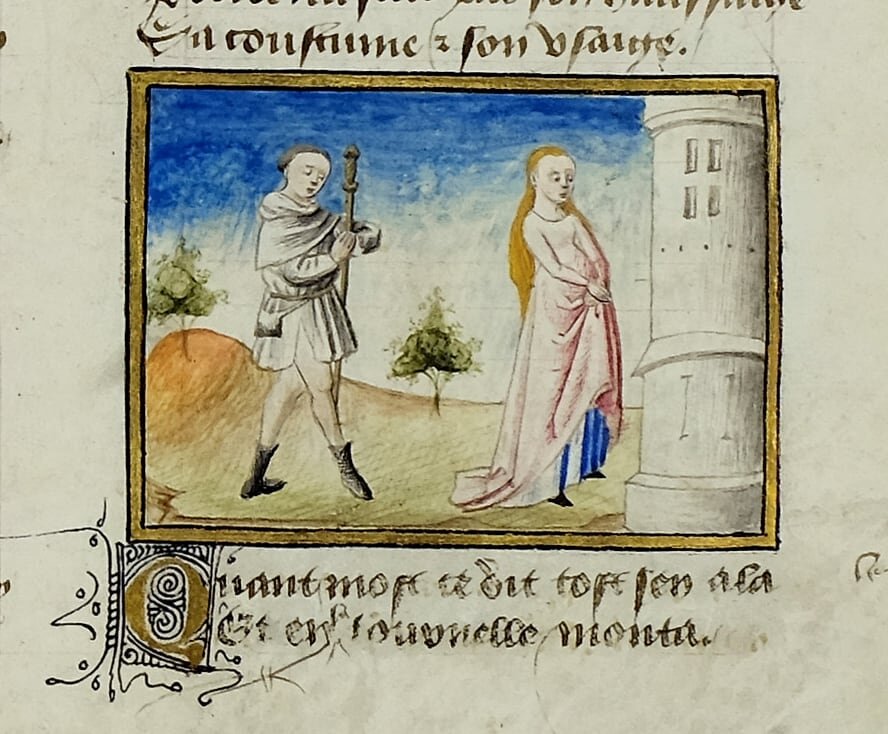 Sa coustume ⁊ son vsaige.
Quant most ce dit tost sen ala
Et en tournelle monta.